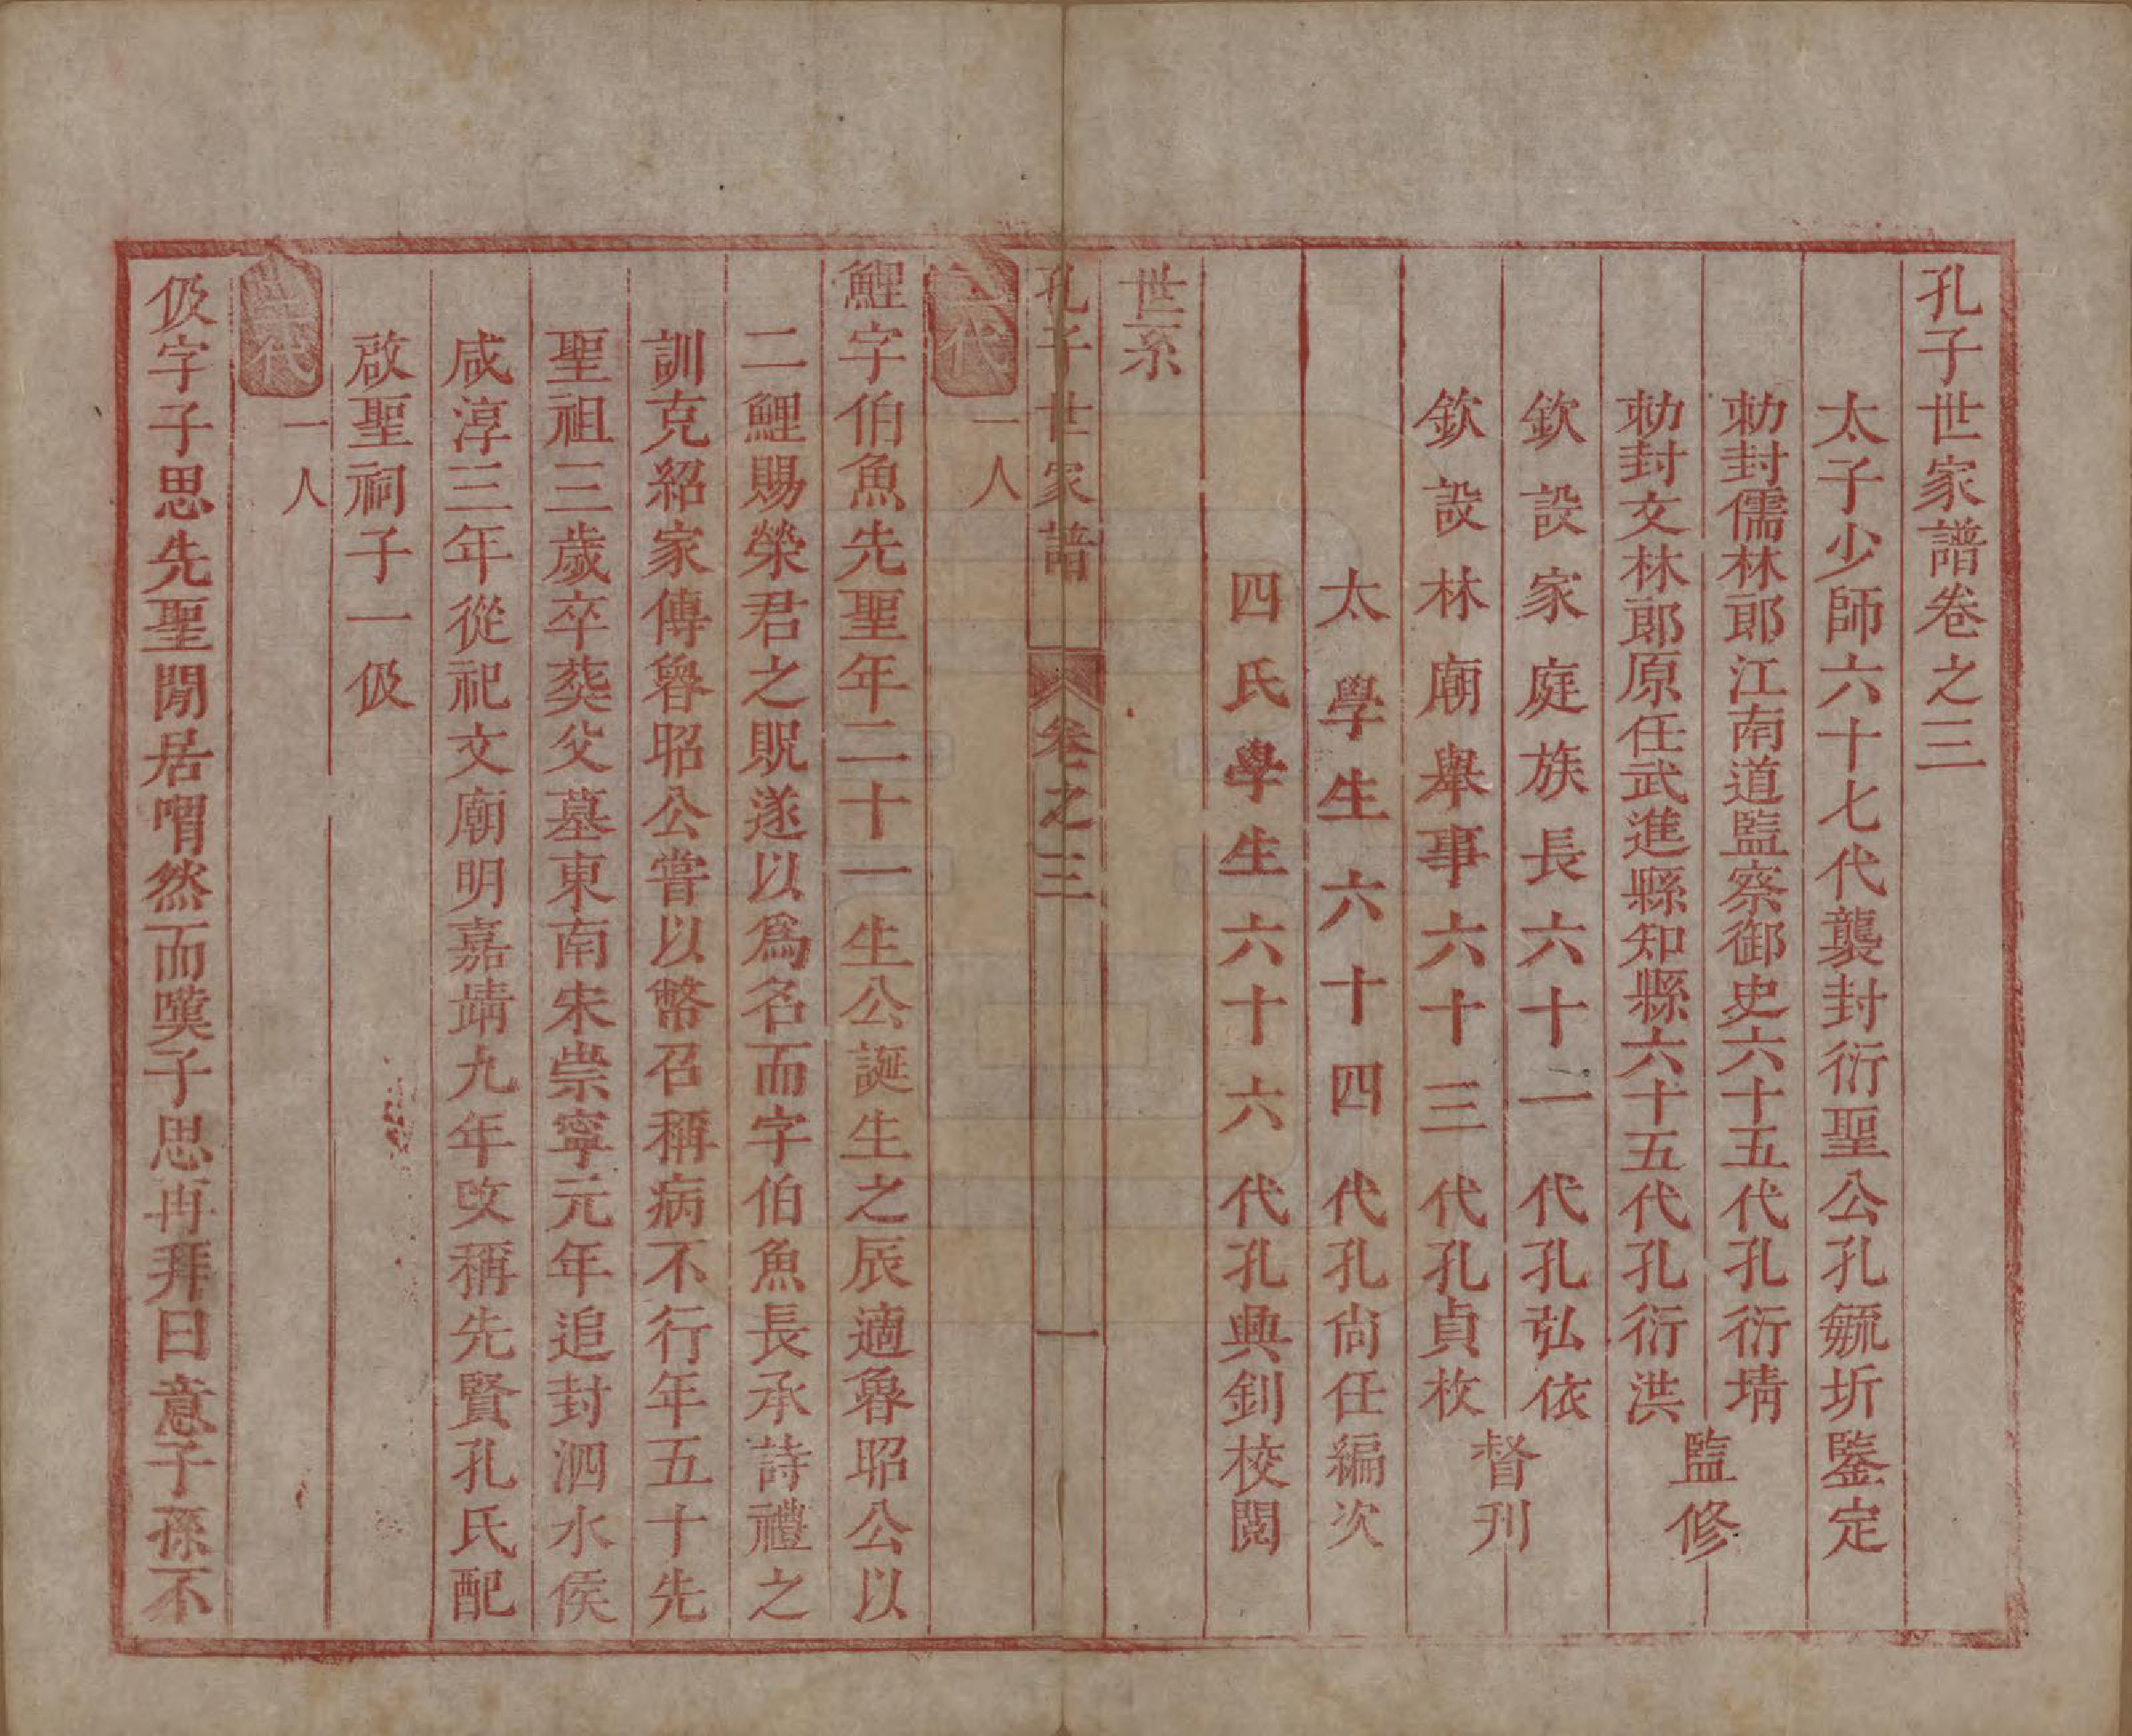 孔子世家譜卷之三
太子少師六十七代襲封衍聖公孔毓圻鑒定
勅封儒林郎江南道監察御史六十五代孔衍堶
勅封文林郎原任武進縣知縣六十五代孔衍洪
監修
欽設家庭族長六十一代孔弘依
欽設林廟舉事六十三代孔貞枚
督刊
太學生六十四代孔尙任編次
四氏學生六十六代孔興釗校閱
世系
孔子世家譜 卷之三 一
二代 一人
鯉字伯魚先聖年二十一生公誕生之辰適魯昭公以
二鯉賜榮君之貺遂以爲名而字伯魚長承詩禮之
訓克紹家傳魯昭公嘗以幣召稱病不行年五十先
聖祖三歲卒葬父墓東南宋崇寧元年追封泗水侯
咸淳三年從祀文廟明嘉靖九年改稱先賢孔氏配
啟聖祠子一伋
三代 一人
伋字子思先聖閒居喟然而嘆子思再拜曰意子孫不